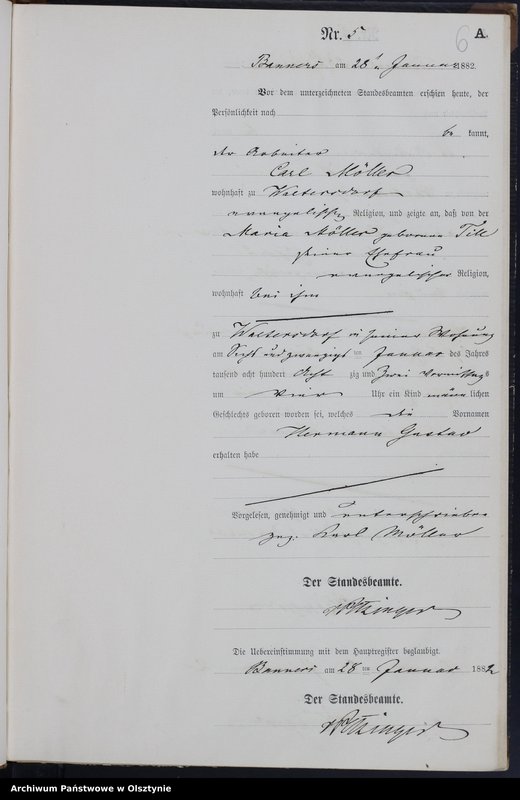 6
Nr. 5 A.
Banners am 28ten Januar 1882.
Vor dem unterzeichneten Standesbeamten erschien heute, der
Persönlichkeit nach
be kannt,
der Arbeiter
Carl Möller
wohnhaft zu Waltersdorf
evangelischer Religion, und zeigte an, daß von der
Maria Möller geborenen Till
seiner Ehefrau
evangelischer Religion,
wohnhaft bei ihm
zu Waltersdorf in seiner Wohnung
am Sechs und zwanzigsten Januar des Jahres
tausend acht hundert Acht zig und Zwei Vormittags
um Vier Uhr ein Kind männ lichen
Geschlechts geboren worden sei, welches die Vornamen
Hermann Gustav
erhalten habe
Vorgelesen, genehmigt und unterschrieben
gez. Karl Möller
Der Standesbeamte.
Die Uebereinstimmung mit dem Hauptregister beglaubigt.
Banners am 28 ten Januar 1882
Der Standesbeamte.
Archiwum Państwowe w Olsztynie